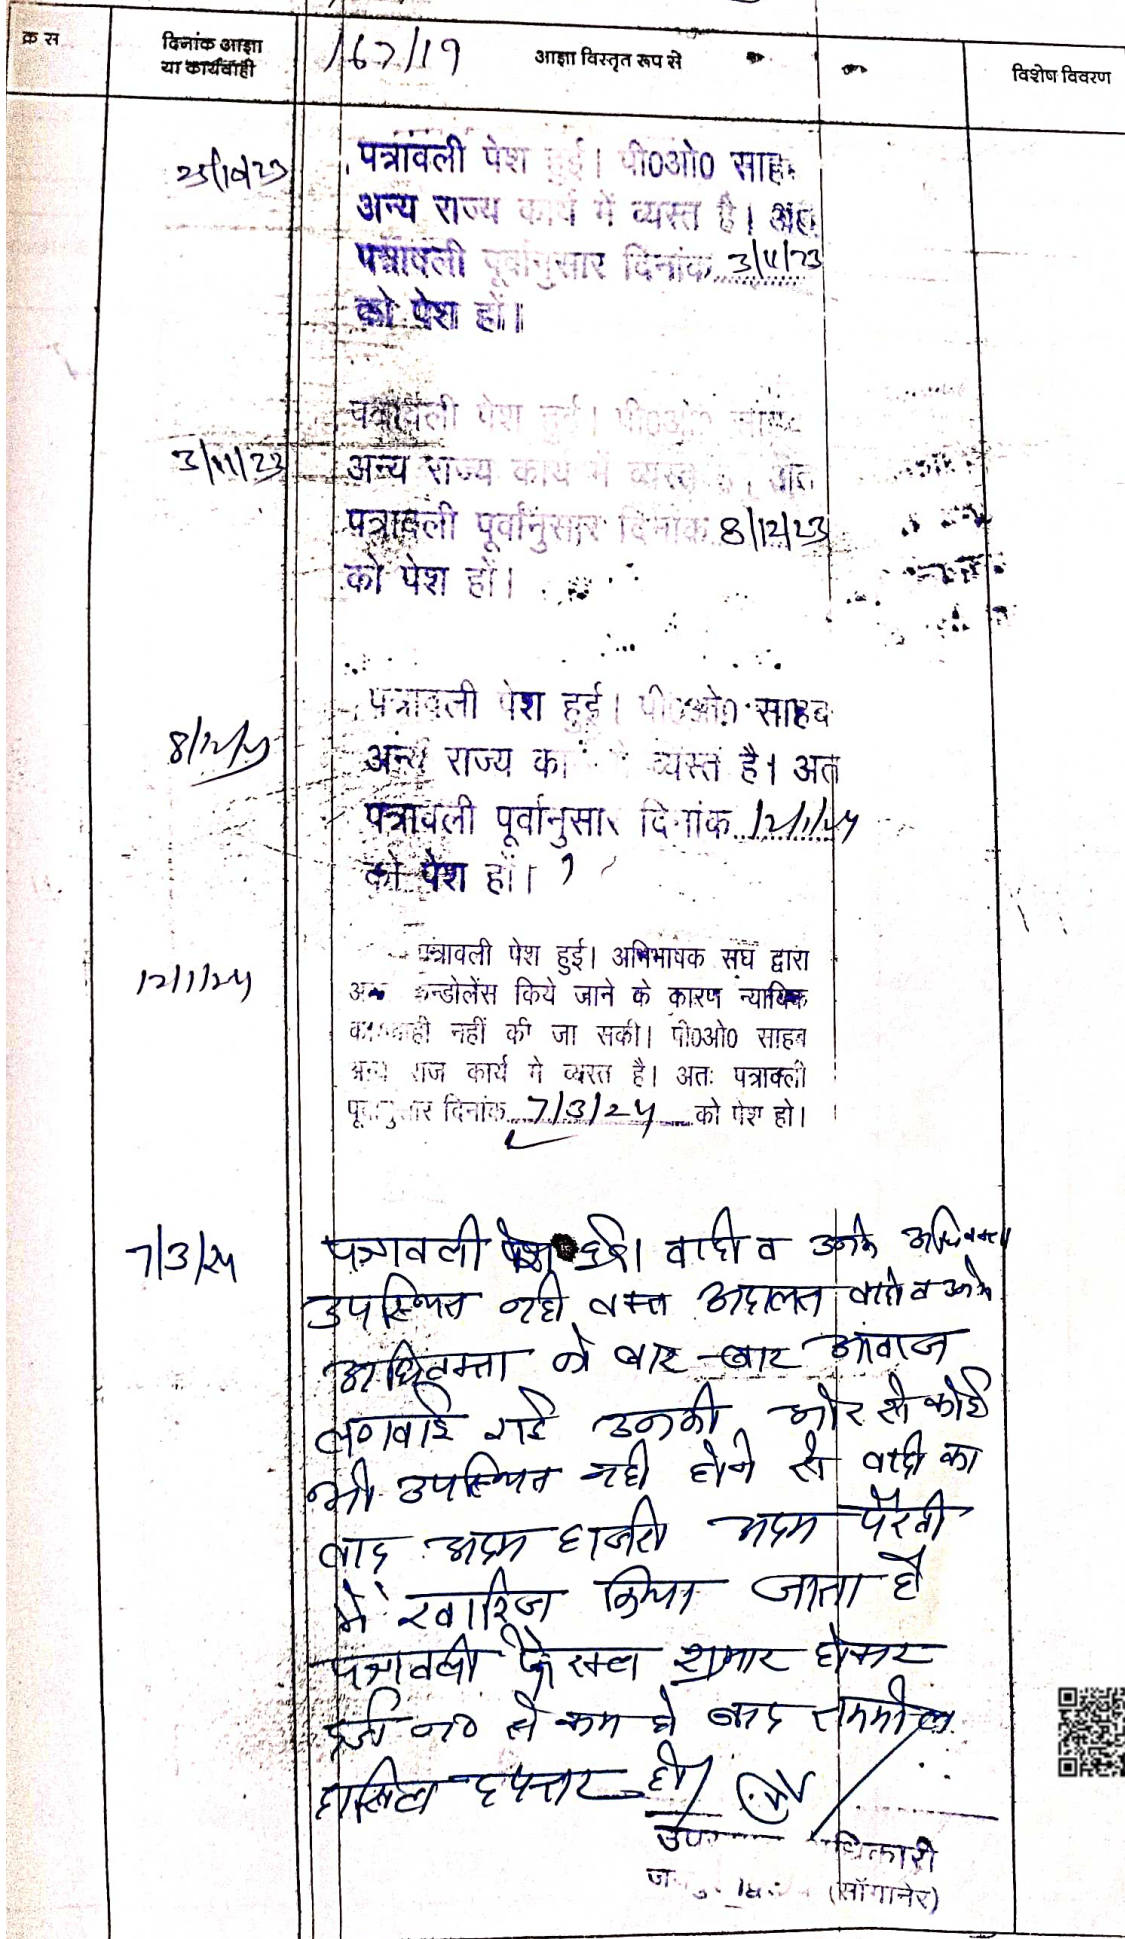 क्र स दिनांक आज्ञा 167/19 आज्ञा विस्तृत रूप से विशेष विवरण
या कार्यवाही
25/10/23 पत्रावली पेश हुई। पी0ओ0 साहब
अन्य राज्य कार्य में व्यस्त है। अतः
पत्रावली पूर्वानुसार दिनांक 3/11/23
को पेश हों।
पत्रावली पेश हुई। पी0ओ0 साहब
3/11/23 अन्य राज्य कार्य में व्यस्त है। अतः
पत्रावली पूर्वानुसार दिनांक 8/12/23
को पेश हों।
पत्रावली पेश हुई। पी0ओ0 साहब
8/12/23 अन्य राज्य का व्यस्त है। अत
पत्रावली पूर्वानुसार दिनांक 12/1/24
को पेश हों।
पत्रावली पेश हुई। अभिभाषक संघ द्वारा
12/1/24 कन्डोलेंस किये जाने के कारण न्यायिक
कार्यवाही नहीं की जा सकी। पी0ओ0 साहब
अन्य राज कार्य मे व्यस्त है। अतः पत्रावली
पूर्वानुसार दिनांक 7/3/24 को पेश हो।
7/3/24 पत्रावली पेश हुई। वादी व उनके अधिवक्ता
उपस्थित नही वक्त अदालत वादी व उनके
अधिवक्ता को बार-बार आवाज
लगवाई गई उनकी ओर से कोई
भी उपस्थित नही होने से वादी का
वाद अदम हाजरी अदम पैरवी
मे खारिज किया जाता है
पत्रावली फैसला शुमार होकर
दर्ज न0 से कम हो बाद तकमील
दाखिल दफ्तर हो।
उप धिकारी
(सॉगानेर)